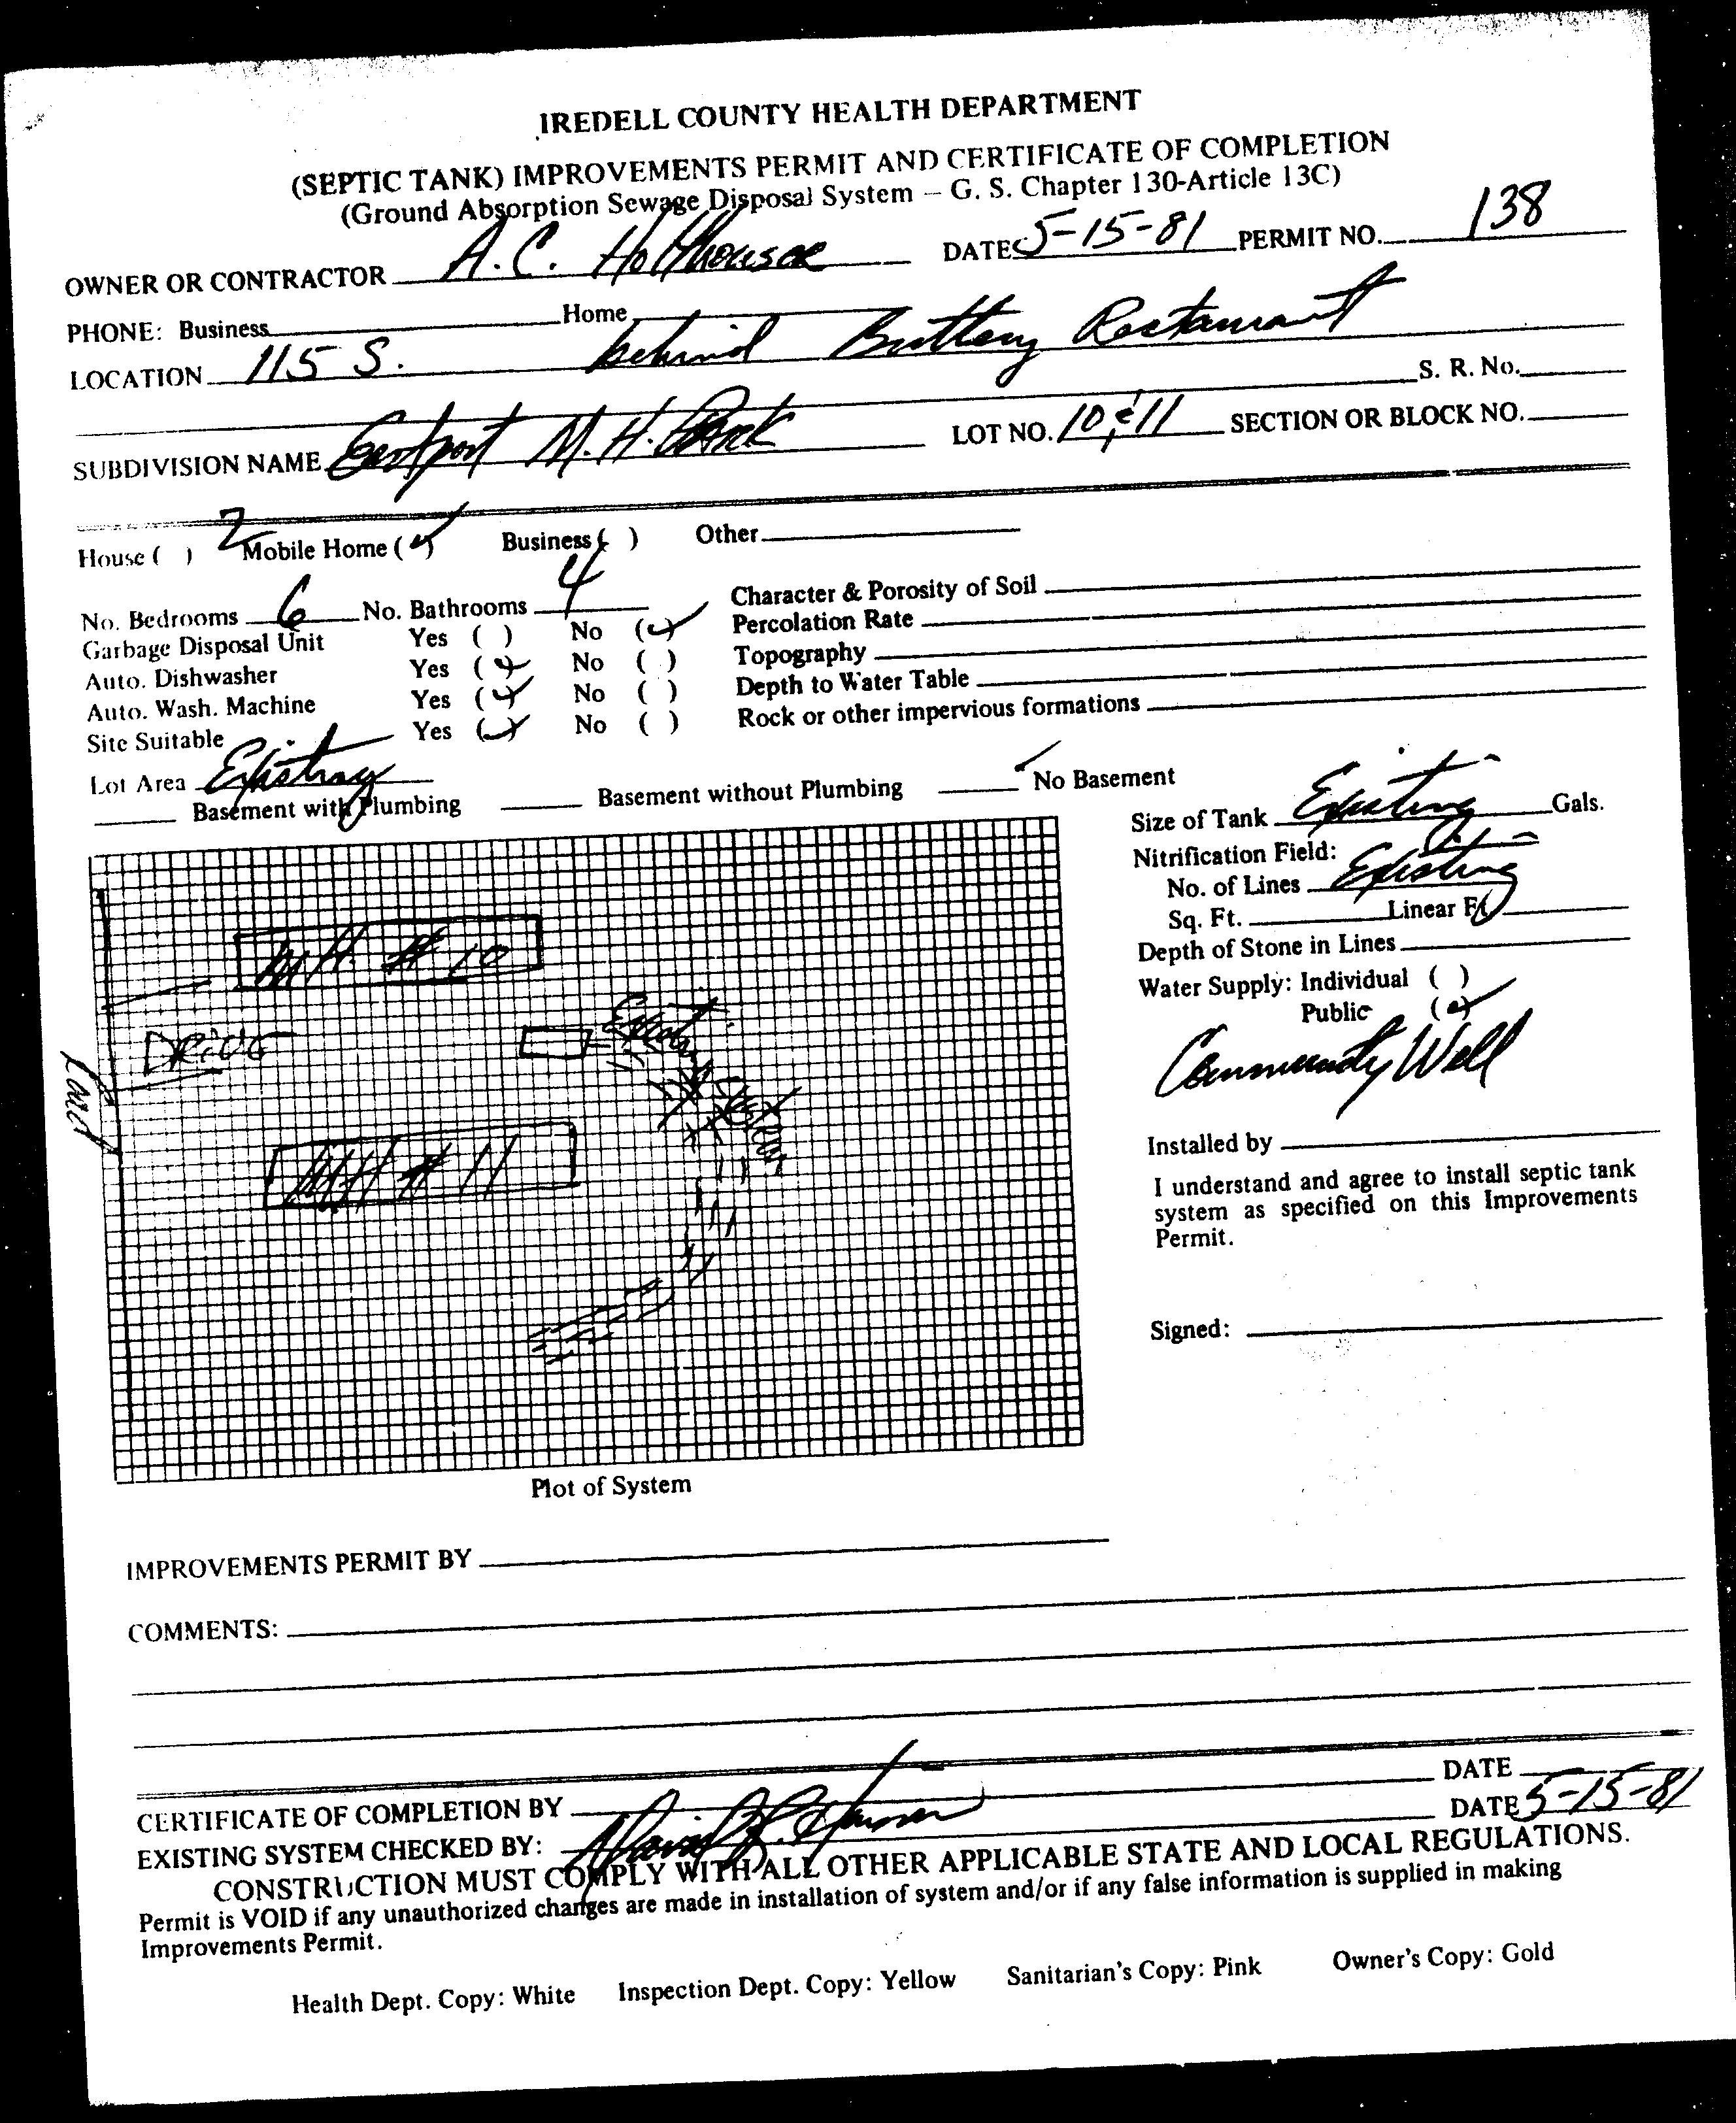 IREDELL COUNTY HEALTH DEPARTMENT
(SEPTIC TANK) IMPROVEMENTS PERMIT AND CERTIFICATE OF COMPLETION
(Ground Absorption Sewage Disposal System – G. S. Chapter 130-Article 13C)
OWNER OR CONTRACTOR A.C. Holthouser DATE 5-15-81 PERMIT NO. 138
PHONE: Business Home
LOCATION 115 S. behind Buttery Restaurant
S. R. No.
SUBDIVISION NAME M. H. Park LOT NO. 10 & 11 SECTION OR BLOCK NO.
House ( ) 2 Mobile Home (✓) Business ( ) Other
No. Bedrooms 6 No. Bathrooms 4 Character & Porosity of Soil
Garbage Disposal Unit Yes ( ) No (✓) Percolation Rate
Auto. Dishwasher Yes (✓) No ( ) Topography
Auto. Wash. Machine Yes (✓) No ( ) Depth to Water Table
Site Suitable Yes (✓) No ( ) Rock or other impervious formations
Lot Area Existing
Basement with Plumbing Basement without Plumbing ✓ No Basement
Size of Tank Existing Gals.
Nitrification Field:
No. of Lines Existing
Sq. Ft. Linear Ft.
Depth of Stone in Lines
Water Supply: Individual ( )
Public (✓)
Community Well
Installed by
I understand and agree to install septic tank
system as specified on this Improvements
Permit.
Signed:
M.H. # 10
DRIVE
Road
MH # 11
Plot of System
IMPROVEMENTS PERMIT BY
COMMENTS:
CERTIFICATE OF COMPLETION BY DATE
EXISTING SYSTEM CHECKED BY: DATE 5-15-81
CONSTRUCTION MUST COMPLY WITH ALL OTHER APPLICABLE STATE AND LOCAL REGULATIONS.
Permit is VOID if any unauthorized changes are made in installation of system and/or if any false information is supplied in making
Improvements Permit.
Health Dept. Copy: White Inspection Dept. Copy: Yellow Sanitarian's Copy: Pink Owner's Copy: Gold